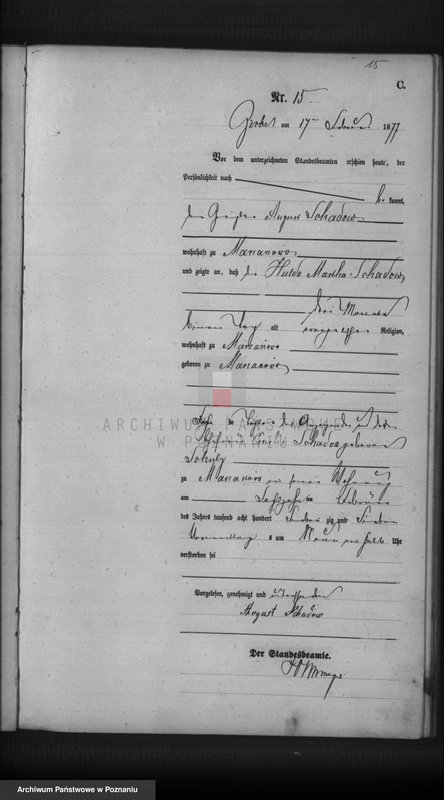 15
C.
Nr. 15
Zirke am 17ten Februar 1877
Vor dem unterzeichneten Standesbeamten erschien heute, der
Persönlichkeit nach
be kannt,
der August Schadow
wohnhaft zu Marianowo
und zeigte an, daß die Hulda Martha Schadow
drei Monate
einen Tag alt evangelischer Religion,
wohnhaft zu Marianowo
geboren zu Marianowo
ARCHIWUM PAŃSTWOWE
W POZNANIU
Tochter des Anzeigenden und der
Schadow geborene
Schulz
zu Marianowo in seiner Wohnung
am sechszehn ten Februar
des Jahres tausend acht hundert sieben zig und sieben
Vormittags um neun ein halb Uhr
verstorben sei
Vorgelesen, genehmigt und unterschrieben
August Schadow
Der Standesbeamte.
Archiwum Państwowe w Poznaniu